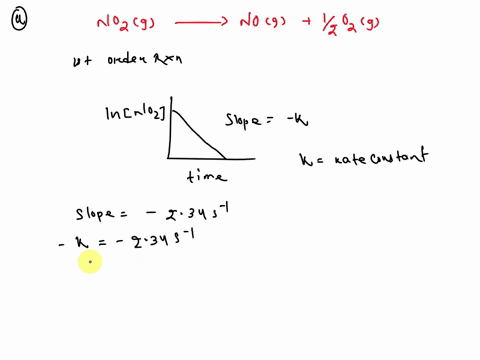 a
NO2(g) → NO(g) + 1/2 O2(g)
order Rxn
ln[NO2]
Slope = -K
time
K = rate constant
Slope = - 2.34 s⁻¹
- K = - 2.34 s⁻¹